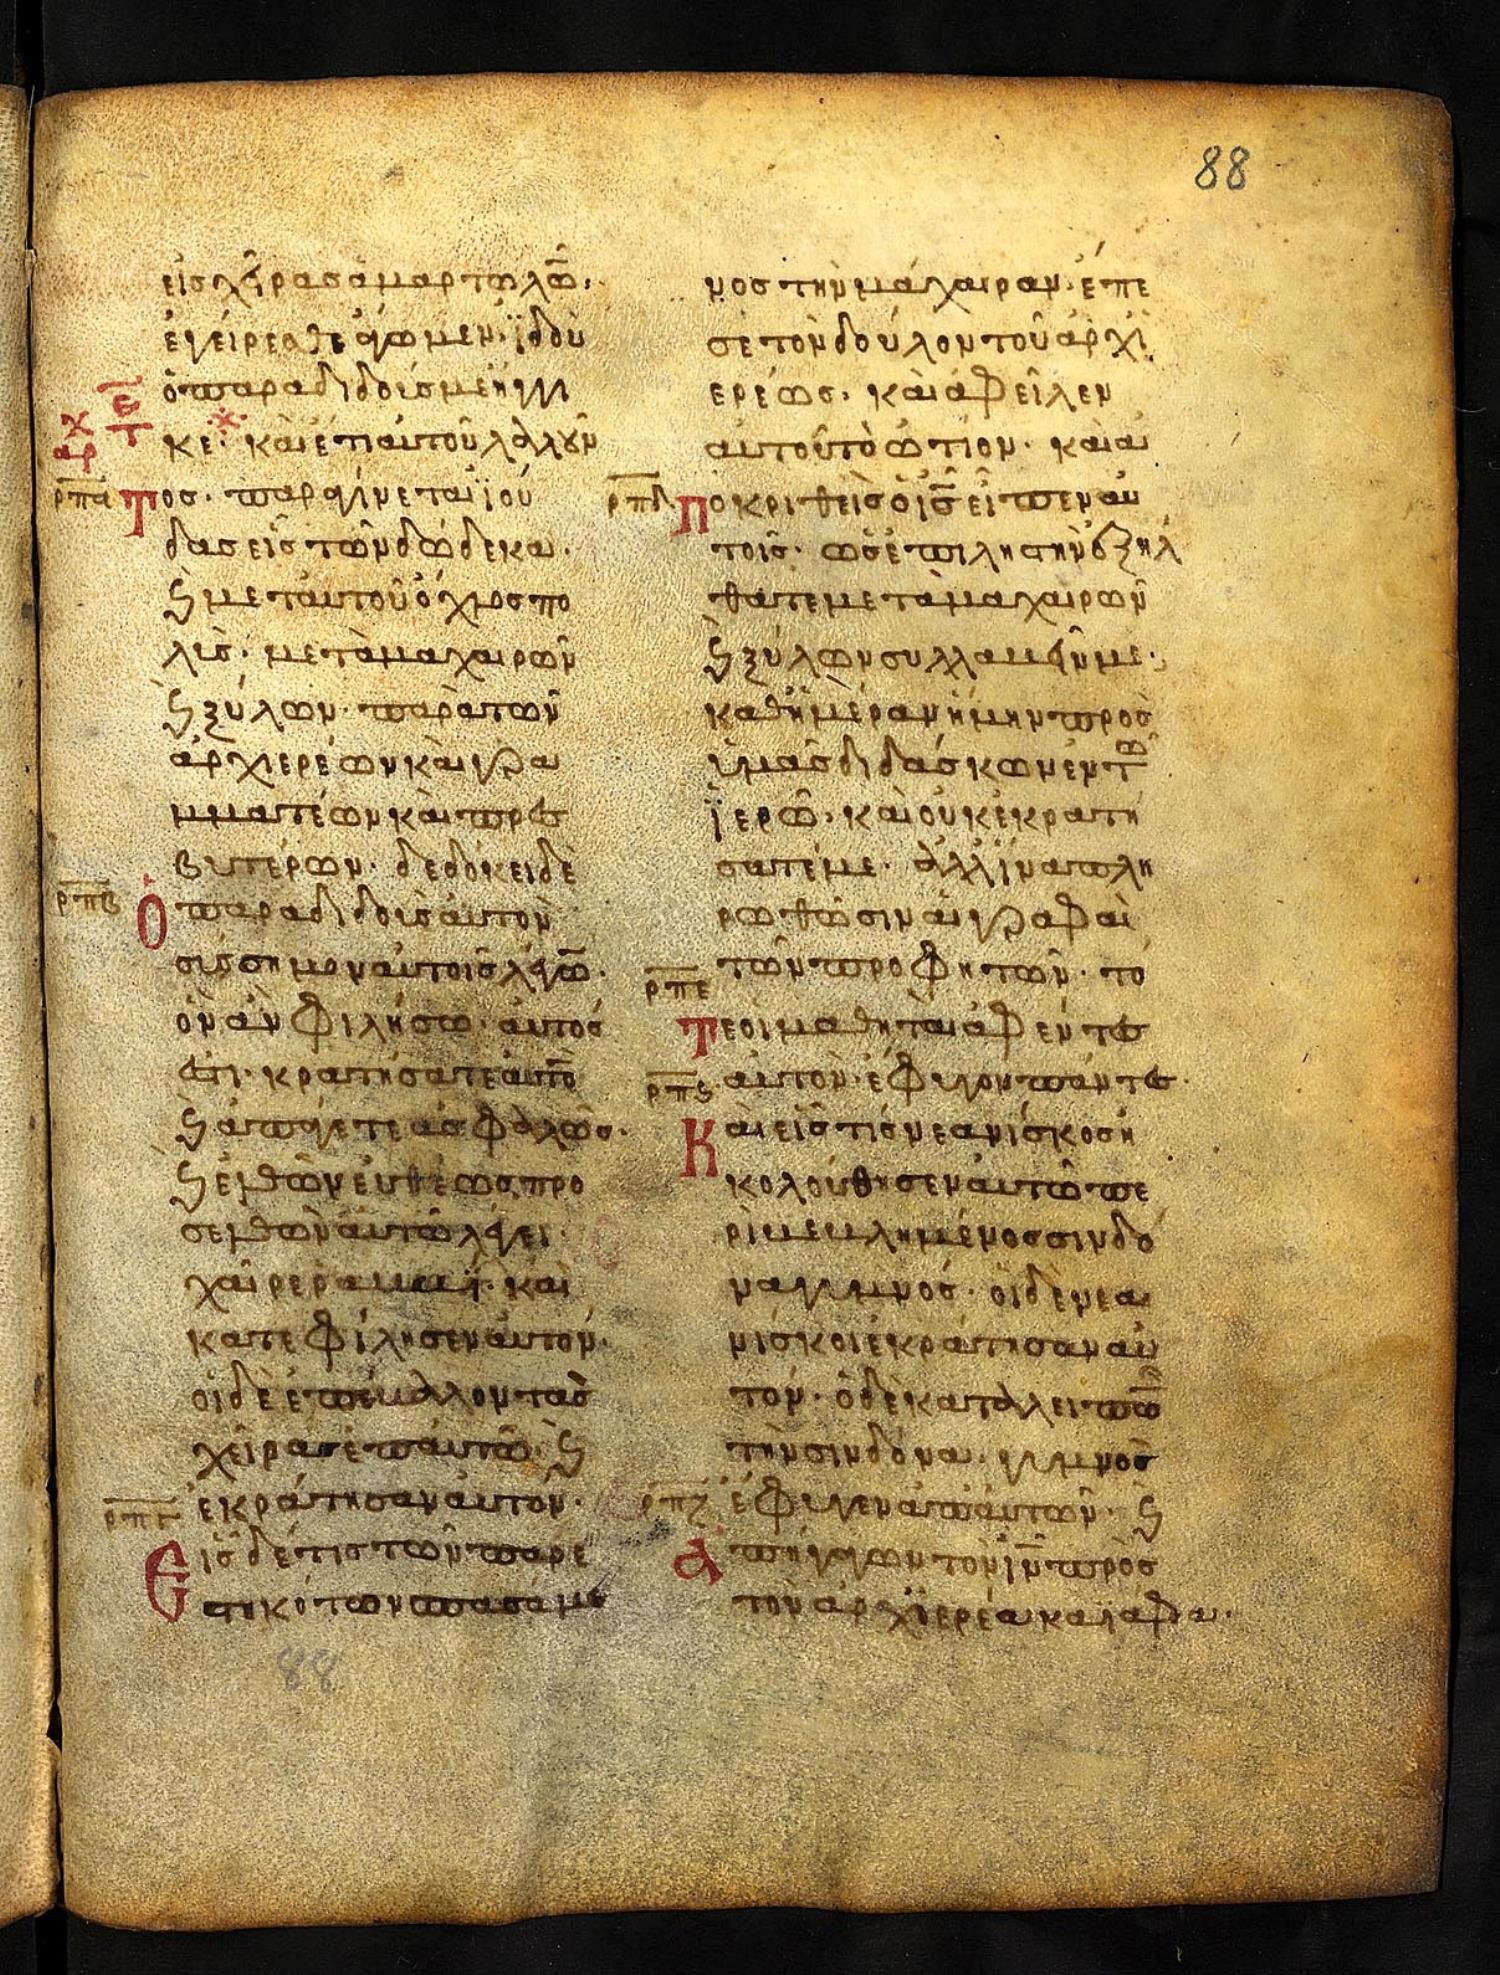 88
εἰς χεῖρας ἁμαρτωλῶ̅·
ἐγείρεσθε ἄγωμεν· ἰ̈δοὺ
ὁ παραδιδούς με ἤγγι
κε· καὶ ἔτι αὐτοῦ λαλοῦν
ρπα τος· παραγίνεται ἰ̈ού
δας εἷς τῶν δώδεκα·
ϗ μετ αὐτοῦ ὄχλος πο
λύς· μετὰ μαχαιρῶν
ϗ ξύλων· παρὰ τῶν
ἀρχιερέων καὶ γρα
μματέων καὶ πρεσ
βυτέρων· δεδώκει δὲ
ρπβ ὁ παραδιδοὺς αὐτὸν
σύσσημον αὐτοῖς λέγω̅·
ὃν ἂν φιλήσω· αὐτός
ἐστι· κρατήσατε αὐτὸ̅
ϗ ἀπάγετε ἀσφαλῶς·
ϗ ἐλθὼν εὐθέως προ
σελθὼν αὐτῶ λέγει·
χαῖρε ραββί· καὶ
κατεφίλησεν αὐτόν·
οἱ δὲ ἐπέβαλλον τὰς
χεῖρας ἐπ αὐτῶ· ϗ
ρπγ ἐκράτησαν αὐτόν·
εἷς δέ τις τῶν παρε
στηκότων σπασάμε
νος τὴν μάχαιραν· ἔπε
σε τὸν δοῦλον τοῦ ἀρχι
ερέως· καὶ ἀφεῖλεν
αὐτοῦ τὸ ὠτίον· καὶ α
ρπδ ποκριθεὶς ὁ ι̅ς̅ εἶπεν αὐ
τοῖς· ὡς ἐπὶ ληστὴν ἐξήλ
θατε μετὰ μαχαιρῶν
ϗ ξύλων συλλαβεῖν με·
καθ ἡμέραν ἤμην πρὸς
ὑμᾶς διδάσκων ἐν τῶ
ἰ̈ερῶ· καὶ οὐκ ἐκρατή
σατέ με· ἀλλ ἵνα πλη
ρωθῶσιν αἱ γραφαὶ
τῶν προφητῶν· τό
ρπε τε οἱ μαθηταὶ ἀφέντες
ρπς αὐτὸν· ἔφυγον πάντες·
καὶ εἷς τις νεανίσκος ἠ
κολούθησεν αὐτῶ πε
ριβεβλημένος σινδό
να γυμνός· οἱ δὲ νεα
νίσκοι ἐκράτησαν αὐ
τόν· ὁ δὲ καταλειπὼ̅
τὴν σινδόνα· γυμνὸς
ρπζ ἔφυγεν ἀπ αὐτῶν· ϗ
ἀπήγαγων τὸν ι̅ν̅ πρὸς
τὸν ἀρχἱ̈ερέα καϊάφα·
88